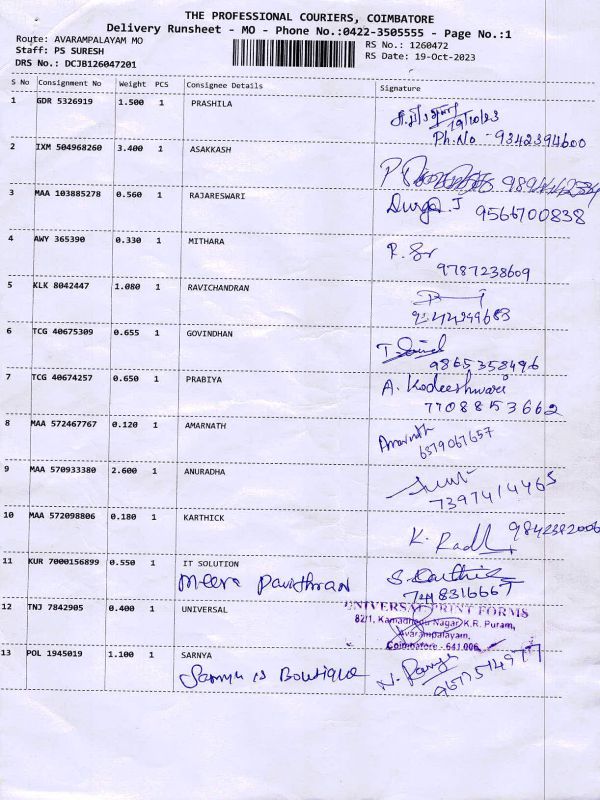 THE PROFESSIONAL COURIERS, COIMBATORE
Delivery Runsheet - MO - Phone No.:0422-3505555 - Page No.:1
Route: AVARAMPALAYAM MO
RS No.: 1260472
Staff: PS SURESH
RS Date: 19-Oct-2023
DRS No.: DCJB126047201
S No Consignment No Weight PCS Consignee Details Signature
1 GDR 5326919 1.500 1 PRASHILA
19/10/23
Ph.No - 9342394600
2 IXM 504968260 3.400 1 ASAKKASH
3 MAA 103885278 0.560 1 RAJARESWARI
Durga J 9566700838
4 AWY 365390 0.330 1 MITHARA
9787238609
5 KLK 8042447 1.080 1 RAVICHANDRAN
6 TCG 40675309 0.655 1 GOVINDHAN
9865358496
7 TCG 40674257 0.650 1 PRABIYA
A. Kodeeshwari
7708853662
8 MAA 572467767 0.120 1 AMARNATH
Amarnath
6379067657
9 MAA 570933380 2.600 1 ANURADHA
7397414465
10 MAA 572098806 0.180 1 KARTHICK
9842382006
11 KUR 7000156899 0.550 1 IT SOLUTION
Meera Pavithran
S. Karthik
12 TNJ 7842905 0.400 1 UNIVERSAL
UNIVERSAL PRINT FORMS
82/1, Kamadhenu Nagar, K.R. Puram,
Avarampalayam,
Coimbatore - 641 006
13 POL 1945019 1.100 1 SARNYA
Sarnya is Boutique